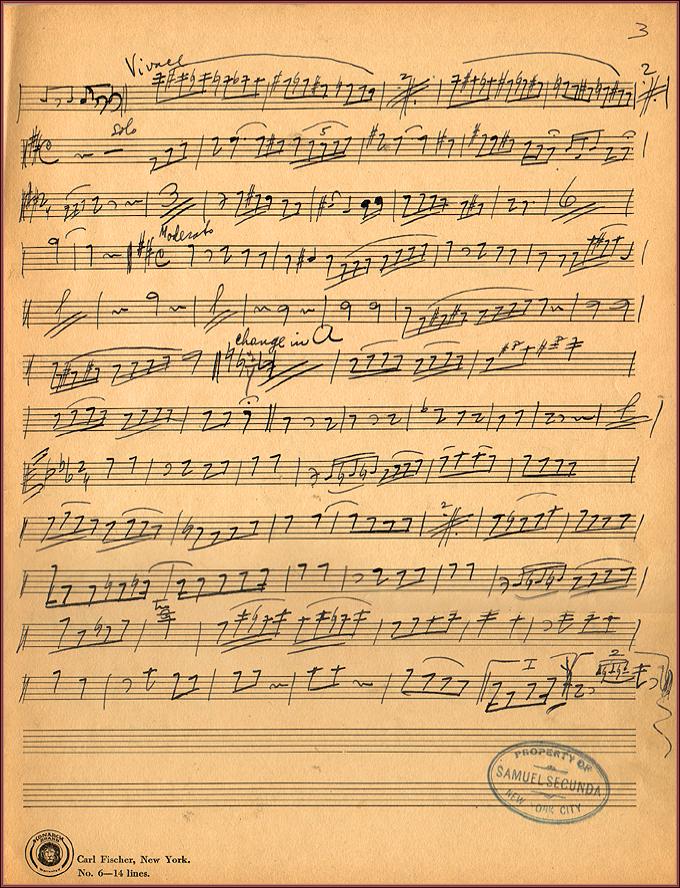 3
Vivace
2
2
Solo
5
3
6
Moderato
change in A
2
I
2
PROPERTY OF
SAMUEL SECUNDA
NEW YORK CITY
MONARCH
BRAND
Carl Fischer, New York.
No. 6—14 lines.